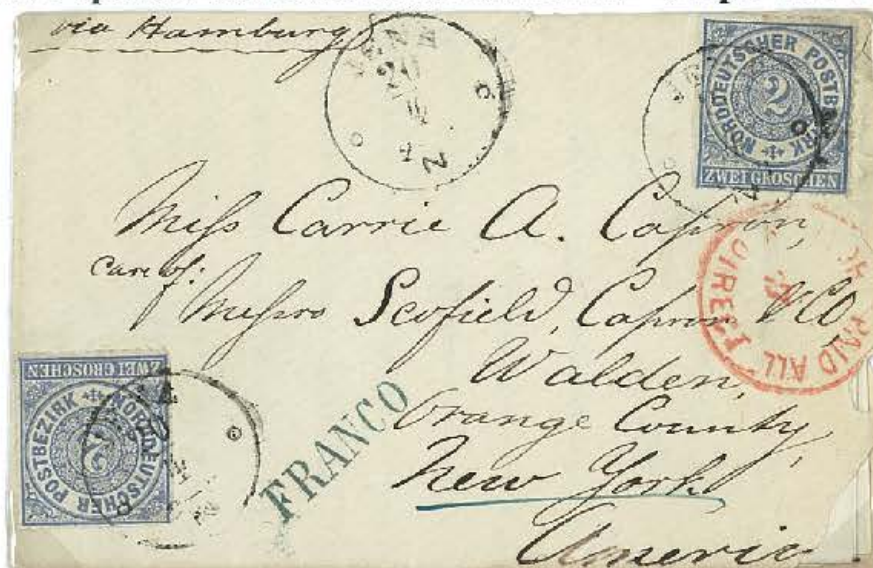 via Hamburg
JENA
20
NORDDEUTSCHER POSTBEZIRK
2
ZWEI GROSCHEN
Miss Carrie A. Capron,
Care of:
Messrs Scofield, Capron & Co
Walden,
Orange County,
New York
America.
PAID ALL
DIRECT
FRANCO
ZWEI GROSCHEN
NORDDEUTSCHER POSTBEZIRK
2